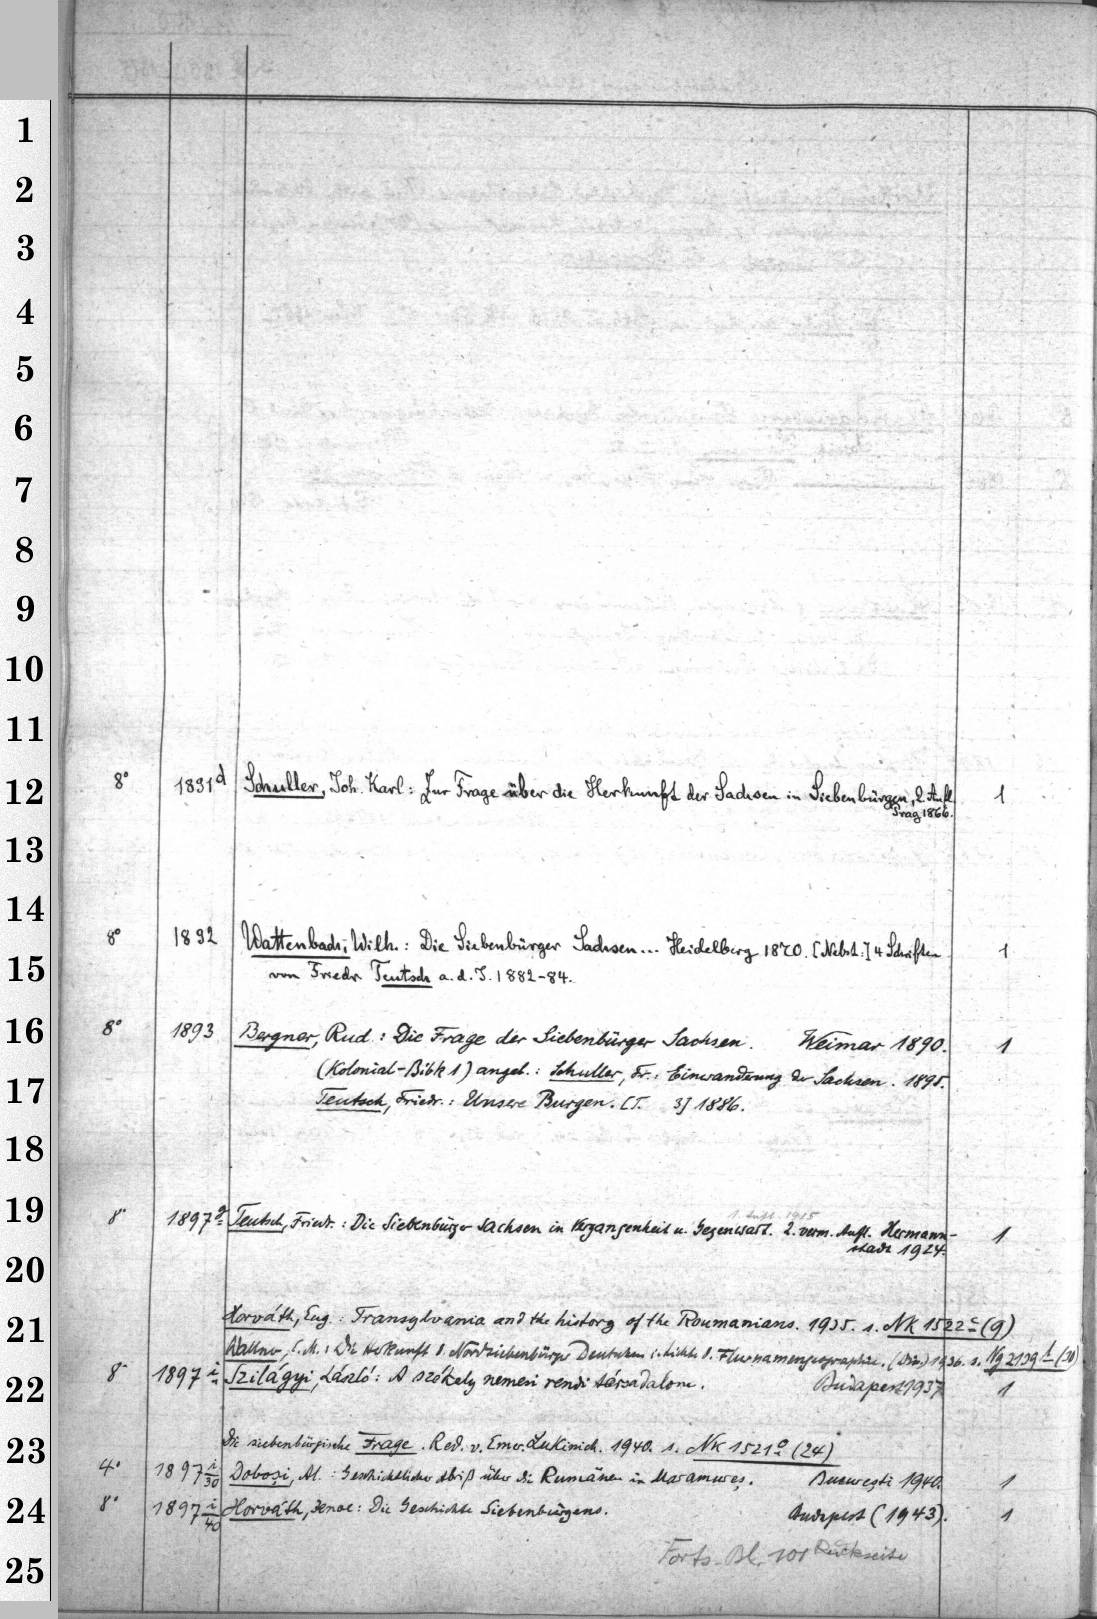 1
2
3
4
5
6
7
8
9
10
11
12
13
14
15
16
17
18
19
20
21
22
23
24
25
8° 1891d Schuller, Joh. Karl: Zur Frage über die Herkunft der Sachsen in Siebenbürgen, 2. Aufl. 1
Prag 1866.
8° 1892 Wattenbach, Wilh.: Die Siebenbürger Sachsen... Heidelberg 1870. [Nebst:] 4 Schriften 1
von Friedr. Teutsch a. d. J. 1882-84.
8° 1893 Bergner, Rud.: Die Frage der Siebenbürger Sachsen. Weimar 1890. 1
(Kolonial-Bibl. 1) angeb.: Schuller, Fr.: Einwanderung der Sachsen. 1895.
Teutsch, Friedr.: Unsere Burgen. [T. 3] 1886.
1. Aufl. 1915
8° 1897g Teutsch, Friedr.: Die Siebenbürger Sachsen in Vergangenheit u. Gegenwart. 2. verm. Aufl. Hermann- 1
stadt 1924.
Horváth, Eug.: Transylvania and the history of the Roumanians. 1935. s. NK 1522c (9)
Die Herkunft d. Nordsiebenbürger Deutschen i. Lichte d. Flurnamengeographie. (Diss.) 1936. s. Ng 2139
8° 1897i Szilágyi, László: A székely nemesi rendi társadalom. Budapest 1937 1
Die siebenbürgische Frage. Red. v. Emer. Lukinich. 1940. s. NK 1521o (24)
4° 1897 i/30 Doboşi, Al.: Geschichtlicher Abriß über die Rumänen in Maramureş. Bucureşti 1940. 1
8° 1897 i/40 Horváth, Jenoe: Die Geschichte Siebenbürgens. Budapest (1943). 1
Forts. Bl. 101 Rückseite